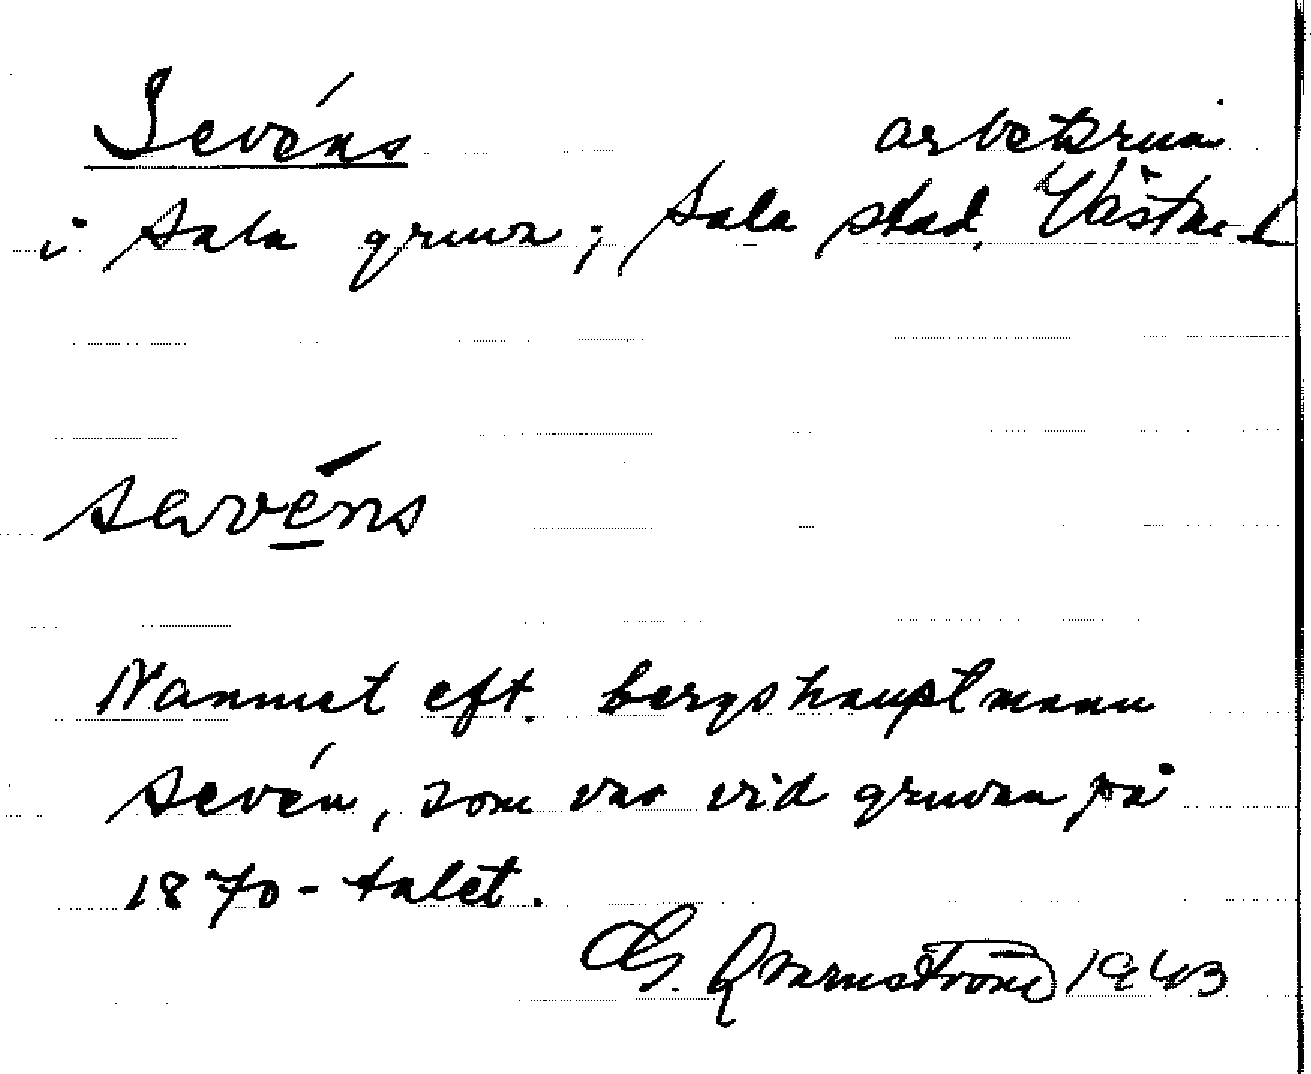 Sevéns arbetsrum
i Sala gruva; Sala stad, Västml
sevéns
Namnet eft. bergshauptmann
Sevén, som var vid gruvan på
1870-talet.
G. Qvarnström 1943